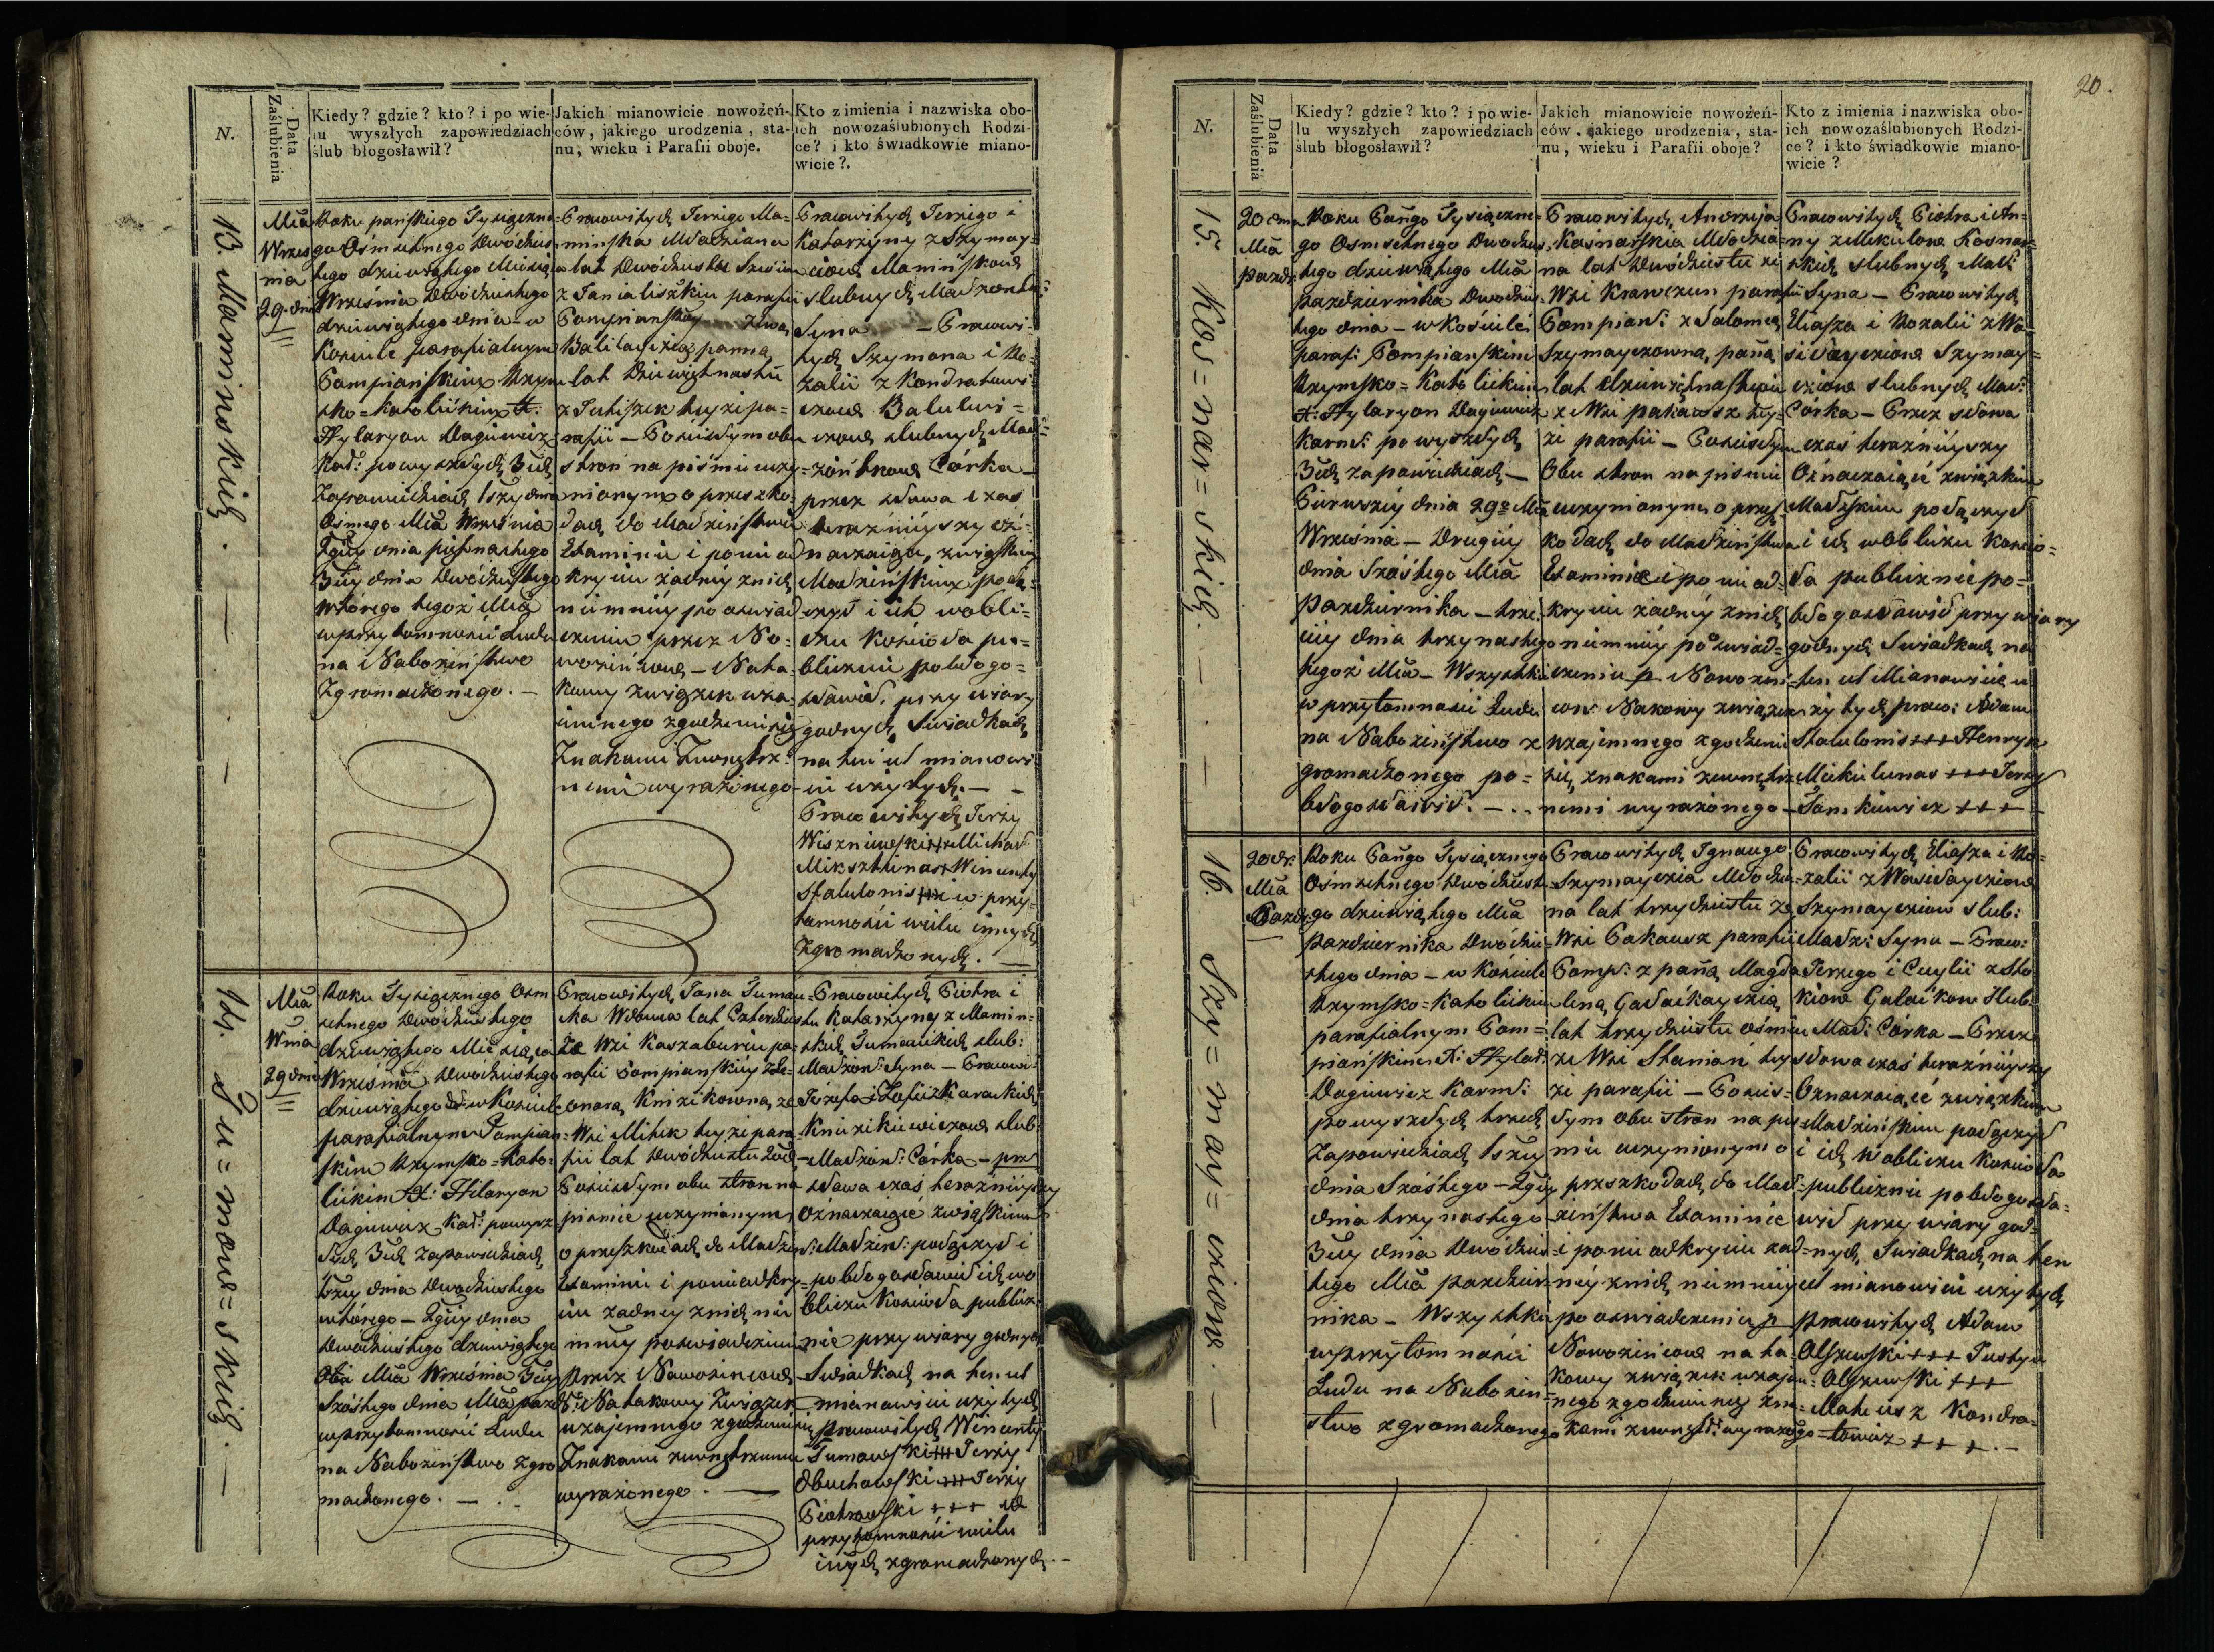 N.
Data Zaślubienia
Kiedy? gdzie? kto? i po wie-
lu wyszłych zapowiedziach
ślub błogosławił?
Jakich mianowicie nowożeń-
ców, jakiego urodzenia, sta-
nu, wieku i Parafii oboje.
Kto z imienia i nazwiska obo-
ich nowozaślubionych Rodzi-
ce? i kto świadkowie miano-
wicie?.
13. Maminskich. —
Mca
Wrześ
nia
29. dnia
Roku pańskiego Tysiączne-
go Ośmsetnego Dwódzies-
tego dziewiątego Miesiąca
Września Dwódziestego
dziewiątego dnia - w
Kościele parafialnym
Pompiańskim Rzym
sko = Katolickim X.
Hylaryon Dagiewicz
Kar: po wyszłych 3ch
Zapowiedziach 1szey dnia
Osmego Mca Września
2giey dnia piętnastego
3ciey dnia Dwódziestego
wtórego tegoż Mca
w przytomności Ludu
na Nabożeństwo
Zgromadzonego. —
Prawowitych Jerzego Ma-
minska Młodziana
lat Dwódziestu Sześciu
z Janialiszkiu parafii
Pompianskiey z Ewą
panną
lat Dziewiętnastu
teyże pa-
rafii — Pościsłym obu
stron na piśmie uczy-
nionym o przeszko-
dach do Małżeństwa
Examinie i po nie od
kryciu żadney z nich
niemniey po oświad
czeniu przez No-
wożeńców — Na ta-
kowy związek wza-
iemnego zgodzenia się
Znakami Zewnętrz-
nemi wyrażonego —
Prawowitych Jerzego i
Katarzyny z Szymay-
ciow Maminskow
slubnych Małżonków
Syna — Prawowi-
tych Szymona i Ro-
zalii z Kondratowi-
czow
slubnych Mał-
żonkow Córka —
przez słowa czas
teraznieyszy oz-
naczaiące, związkiem
Małżeńskim połą-
czył i ich w obli-
czu Kościoła pu-
blicznie pobłogo-
sławił, przy wiary
godnych Swiadkach
na ten ut mianowi-
cie użytych. —
Prawowitych Jerzy
Wiszniewski +++ Michał
Miksztunas + Wincenty
Statulonis +++ w przy-
tomności wielu innych
Zgromadzonych. —
14. Tu=mow=skich. —
Mca
Wnia
29 dnia
Roku Tysiącznego Osm
setnego Dwódziestego
dziewiątego Miesiąca
Września Dwódziestego
dziewiątego d: w Kościele
parafialnym Pompian-
skim Rzymsko = Kato-
lickim X: Hilaryon
Dagiewicz Kar: po wysz-
łych 3ch Zapowiedziach
1szey dnia Dwudziestego
wtórego — 2giey dnia
Dwudziestego dziewiątego
Mca Września 3ciey
Szóstego dnia Mca paźd:
w przytomności Ludu
na Nabożeństwo zgro
madzonego. —
Prawowitych Jana Tumow-
ska Wdowca lat Czterdziestu
Ze Wsi Kaszaburiu pa-
rafii Pompianskiey z Ele-
onorą Knizikowną, ze
Wsi Mitek teyże para-
fii lat Dwódziestu
Pościsłym obu stron na
piśmie uczynionym
o przeszkodach do Małżen:
Examinie i po nieodkry-
ciu żadney z nich nie
mniey po oświadczeniu
przez Nowożencow
Na takowy Związek
wzajemnego zgodzenia się
Znakami zewnętrznemi
wyrażonego. —
Prawowitych Piotra i
Katarzyny z Mamin-
skich Tumowskich slub:
Małżon: Syna — Prawowi-
Jozefa i Zofii z Karackich
Knizikiewiczow slub
Małżon: Córka — prz
słowa czas teraznieyszy
oznaczaiące związkiem
Małżen: połączył i
pobłogosławił ich w o
bliczu Kościoła publicz-
nie przy wiary godnych
Swiadkach na ten ut
mianowicie użytych
prawowitych Wincenty
Tumowski +++ Jerzy
Obuchowski +++ Jerzy
Piotrowski +++ w
przytomności wielu
inych zgromadzonych. —
20.
N.
Data Zaślubienia
Kiedy? gdzie? kto? i po wie-
lu wyszłych zapowiedziach
ślub błogosławił?
Jakich mianowicie nowożeń-
ców, jakiego urodzenia, sta-
nu, wieku i Parafii oboje?
Kto z imienia i nazwiska obo-
ich nowozaślubionych Rodzi-
ce? i kto świadkowie miano-
wicie?
15. Kos=nar=skich. —
20 dnia
Mca
pazdz:
Roku Pańgo Tysiączne-
go Osmsetnego Dwódzies
tego dziewiątego Mca
pazdziernika Dwódzies-
tego dnia — w Kościele
paraf: Pompianskim
Rzymsko = Katolickim
X: Hylaryon Dagiewicz
Karm: po wyszłych
3ch zapowiedziach —
Pierwszey dnia 29o Mca
Września — Drugiey
dnia Szóstego Mca
Pazdziernika — trze-
ciey dnia trzynastego
tegoż Mca — Wszystkie
w przytomności Ludu
na Nabożeństwo z
gromadzonego po=
błogosławił. —
Prawowitych, Andrzeja
Kasnarskia Młodzia-
na lat Dwódziestu ze
Wsi Krawczun parafii
Pompian: z Salomeą
Szymayczowną, pańą
lat dziewiętnastu
z Wsi pakausz tey-
że parafii — Poscisłym
Obu stron na piśmie
uczynionym o przesz-
kodach do Małżeństwa
Examinie i po nie od-
kryciu żadney z nich
niemniey po oświad-
czeniu p Nowożeń-
ców Nakowy związek
wzajemnego zgodzenia
się, znakami zewnętrz
nemi wyrażonego —
Prawowitych Piotra i An-
ny z Mekulow Kosnar-
skich slubnych Małż
Syna — Prawowitych
Eliasza i Rozalii z Wa-
siłayciow Szymay-
cziow slubnych Mał:
Córka — Przez słowa
czas teraznieyszy
Oznaczaiące związkiem
Małżskim połączył
i ich w obliczu Koscio=
ła publicznie po=
błogosławił przy wiary
godnych Swiadkach na
ten ut Mianowicie u
żytych, praw: Adam
Statulonis +++ Henryk
Mickielunas +++ Jerzy
Jankiewicz +++
16. Szy=may=cziow. —
20 dn:
Mca
Pazdz:
Roku Pańgo Tysiącznego
Ośmsetnego Dwódziest-
go dziewiątego Mca
pazdziernika Dwódzie-
stego dnia — w Kościele
Rzymsko = Katolickim
parafialnym Pom=
piańskim X: Hylar:
Dagiewicz Karm:
po wyszłych trzech
Zapowiedziach 1szey
dnia Szóstego — 2giey
dnia trzynastego
3ciey dnia Dwódzies-
tego Mca pazdzier-
nika — Wszystkie
w przytomności
Ludu na Nabożen-
stwo zgromadzonego
Prawowitych Ignacego
Szymayczia Młodzia-
na lat trzydziestu ze
Wsi Pakausz parafii
Pomp: z pańą Magda
leną, Gałaikayczią
lat trzydziestu ośmiu
ze Wsi Stanian tey
że parafii — Poscis-
łym obu stron na piś-
mie uczynionym o
przeszkodach do Mał-
żeństwa Examinie
i po nie odkryciu żad-
ney z nich niemniey
po oswiadczeniu p
Nowożeńcow na ta-
kowy związek wzajem-
nego zgodzenia się zna-
kami zewnęt: wyrażogo
Prawowitych Eliasza i Ro-
zalii z Wasiłaycziow
Szymaycziow slub:
Małż: Syna — Praw:
Jerzego i Cecylii z Sta
kiow Galaikow slub
Mał: Córka — Przez
słowa czas teraznieyszy
Oznaczaiące związkiem
Małżeńskim połączył
i ich w obliczu Kościoła
publicznie pobłogosła-
wił przy wiary god-
nych, Swiadkach na ten
ut mianowicie użytych
prawowitych Adam
Olszewski +++ Justyn
Olszewski +++
Mateusz Kondra-
towicz +++. —